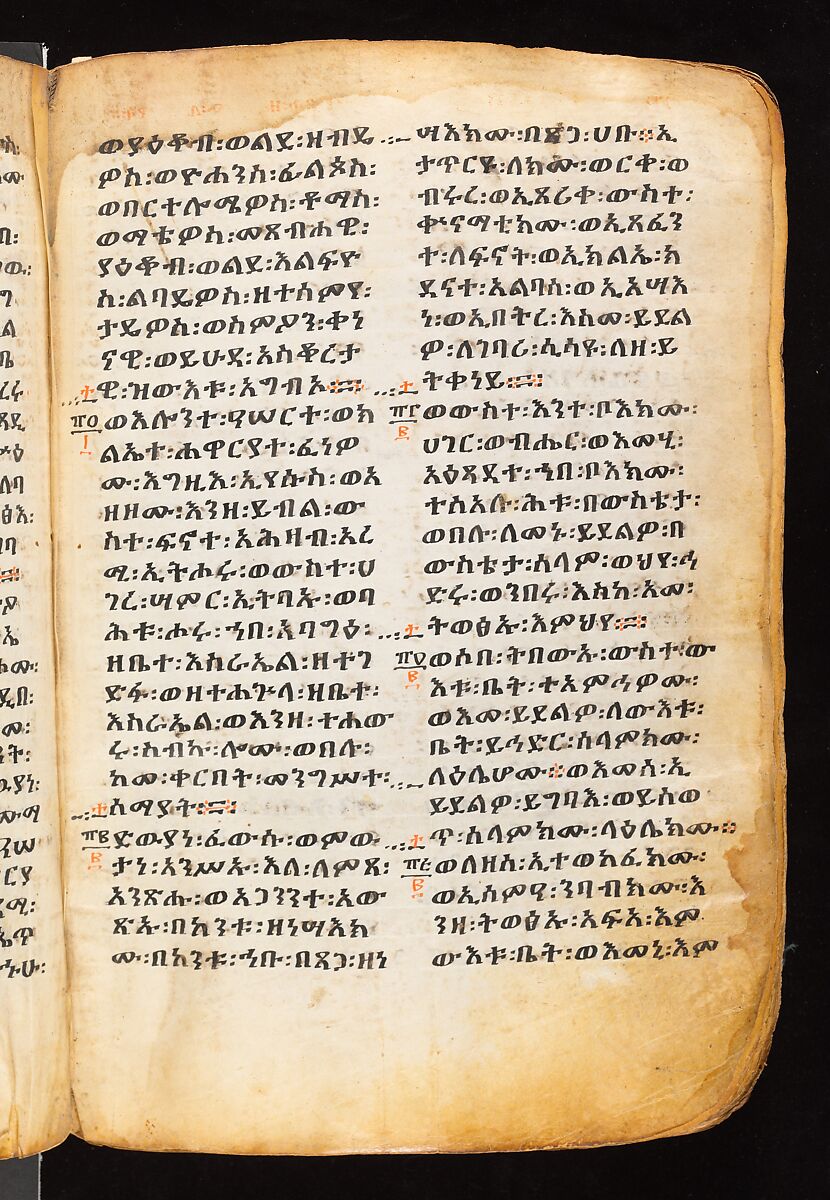 ወያዕቆብ፡ወልደ፡ዘብዴ
ዎስ፡ወዮሐንስ፡ፊልጶስ፡
ወበርተሎሜዎስ፡ቶማስ፡
ወማቴዎስ፡መጸብሐዊ፡
ያዕቆብ፡ወልደ፡እልፍዮ
ስ፡ልባዴዎስ፡ዘተሰምየ፡
ታዴዎስ፡ወስምዖን፡ቀነ
ናዊ፡ወይሁዳ፡አስቆሮታ
ዊ፡ዝውእቱ፡አግብኦ፨
፹፩ ወእሎንተ፡ዓሠርተ፡ወክ
ልኤተ፡ሐዋርያተ፡ፈነዎ
ሙ፡እግዚእ፡ኢየሱስ፡ወአ
ዘዞሙ፡እንዘ፡ይብል፡ው
ስተ፡ፍኖተ፡አሕዛብ፡አረ
ሚ፡ኢትሖሩ፡ወውስተ፡ሀ
ገረ፡ሳምር፡ኢትባኡ፡ወባ
ሕቱ፡ሖሩ፡ኀበ፡አባግዕ፡
ዘቤተ፡እስራኤል፡ዘተገ
ድፋ፡ወዘተሐጕላ፡ዘቤተ፡
እስራኤል፡ወእንዘ፡ተሐው
ሩ፡ስብኩ፡ሎሙ፡ወበሉ፡
ከመ፡ቀርበት፡መንግሥተ፡
ሰማያት፨
ድዉያነ፡ፈውሱ፡ወምው
ታነ፡አንሥኡ፡እለ፡ለምጽ፡
አንጽሑ፡ወአጋንንተ፡አው
ጽኡ፡በከንቱ፡ዘነሣእክ
ሙ፡በከንቱ፡ኀቡ፡በጸጋ፡ዘነ
ሣእክሙ፡በጸጋ፡ሀቡ፨ኢ
ታጥርዩ፡ለክሙ፡ወርቀ፡ወ
ብሩረ፡ወኢጸሪቀ፡ውስተ፡
ቅናማቲክሙ፡ወኢጸፈን
ተ፡ለፍኖት፡ወኢክልኤ፡ክ
ዳናተ፡አልባስ፡ወኢአሣእ
ነ፡ወኢበትረ፡እስመ፡ይደል
ዎ፡ለገባሪ፡ሲሳዩ፡ለዘ፡ይ
ትቀነይ፨
ወውስተ፡እንተ፡ቦእክሙ፡
ሀገር፡ወብሔር፡ወእመሂ፡
አዕጻዳተ፡ኀበ፡ቦእክሙ፡
ተስአሉ፡ሕቱ፡በውስቴታ፡
ወበሉ፡ለመኑ፡ይደልዎ፡በ
ውስቴታ፡ሰላም፡ወህየ፡ኅ
ድሩ፡ወንበሩ፡እስከ፡አመ፡
ትወፅኡ፡እምህየ፨
ወሶበ፡ትበውኡ፡ውስተ፡ው
እቱ፡ቤት፡ተአምኅዎሙ፡
ወእመ፡ይደልዎ፡ለውእቱ፡
ቤት፡ይኅድር፡ሰላምክሙ፡
ላዕሌሆሙ፨ወእመሰ፡ኢ
ይደልዎ፡ይግባእ፡ወይሰወ
ጥ፡ሰላምክሙ፡ላዕሌክሙ፨
ወለዘሰ፡ኢተወክፈክሙ፡
ወኢሰምዓ፡ንባብክሙ፡እ
ንዘ፡ትወፅኡ፡አፍአ፡እም
ውእቱ፡ቤት፡ወእመኒ፡እም